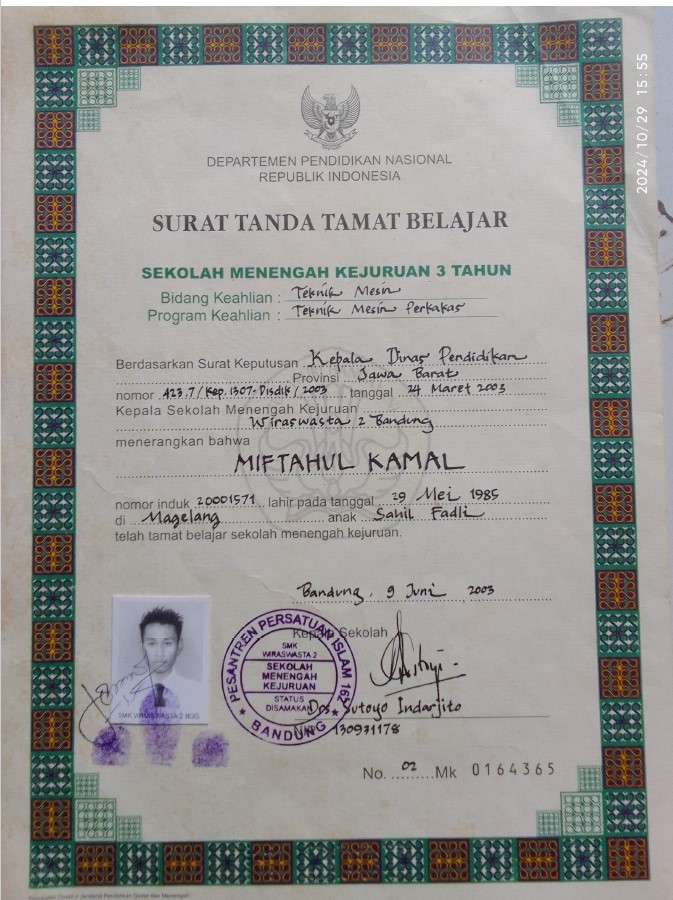 2024/10/29 15:55
DEPARTEMEN PENDIDIKAN NASIONAL
REPUBLIK INDONESIA
SURAT TANDA TAMAT BELAJAR
SEKOLAH MENENGAH KEJURUAN 3 TAHUN
Bidang Keahlian : Teknik Mesin
Program Keahlian : Teknik Mesin Perkakas
Berdasarkan Surat Keputusan Kepala Dinas Pendidikan
Provinsi Jawa Barat
nomor 423.7/Kep.1307-Disdik/2003 tanggal 24 Maret 2003
Kepala Sekolah Menengah Kejuruan
Wiraswasta 2 Bandung
menerangkan bahwa
MIFTAHUL KAMAL
nomor induk 20001571 lahir pada tanggal 29 Mei 1985
di Magelang anak Sahil Fadli
telah tamat belajar sekolah menengah kejuruan.
Bandung, 9 Juni 2003
Kepala Sekolah
PESANTREN PERSATUAN ISLAM 162
SMK
WIRASWASTA 2
SEKOLAH
MENENGAH
KEJURUAN
STATUS
DISAMAKAN
BANDUNG
SMK WIRASWASTA 2 BDG
Drs. Sutoyo Indarjito
130931178
No. 02 Mk 0164365